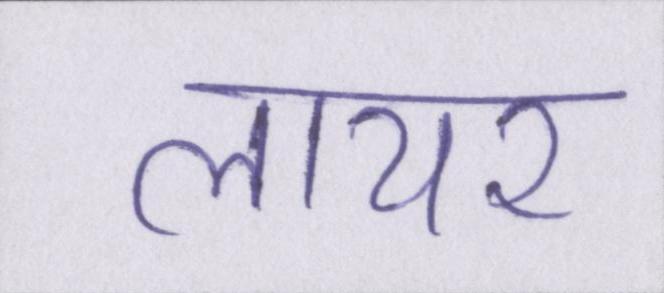 लायर